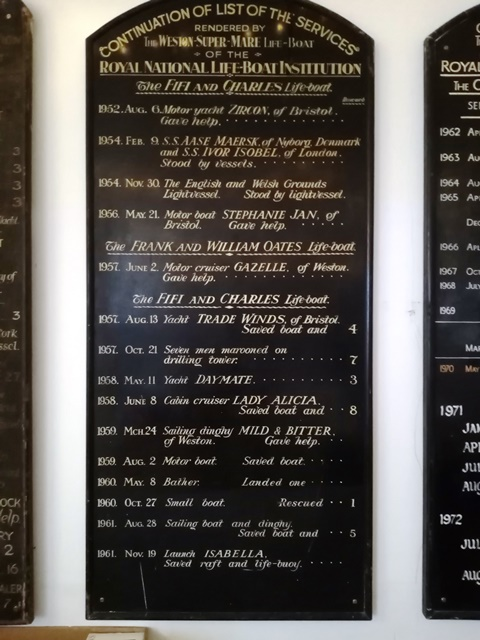 CONTINUATION OF LIST OF THE SERVICES
RENDERED BY
THE WESTON-SUPER-MARE LIFE-BOAT
OF THE
ROYAL NATIONAL LIFE-BOAT INSTITUTION
The FIFI AND CHARLES Life-boat.
1952. AUG. 6. Motor yacht ZIRCON, of Bristol.
Gave help.
1954. FEB. 9. S.S. AASE MAERSK, of Nyborg, Denmark
and S.S. IVOR ISOBEL, of London.
Stood by vessels.
1954. NOV. 30. The English and Welsh Grounds
Lightvessel. Stood by lightvessel.
1956. MAY. 21. Motor boat STEPHANIE JAN, of
Bristol. Gave help.
The FRANK AND WILLIAM OATES Life-boat.
1957. JUNE 2. Motor cruiser GAZELLE, of Weston.
Gave help.
The FIFI AND CHARLES Life-boat.
1957. AUG. 13 Yacht TRADE WINDS, of Bristol.
Saved boat and 4
1957. OCT. 21 Seven men marooned on
drilling tower. 7
1958. MAY. 11 Yacht DAYMATE. 3
1958. JUNE 8 Cabin cruiser LADY ALICIA.
Saved boat and 8
1959. MCH 24 Sailing dinghy MILD & BITTER,
of Weston. Gave help.
1959. AUG. 2 Motor boat. Saved boat.
1960. MAY. 8 Bather. Landed one
1960. OCT. 27 Small boat. Rescued 1
1961. AUG. 28 Sailing boat and dinghy.
Saved boat and 5
1961. NOV. 19 Launch ISABELLA.
Saved raft and life-buoy.
3
3
3
3
3
OCK
Help
RY
2
16
7
ROYAL
THE
SE
1962 AP
1963 AU
1964 AU
1965 AP
DE
1966 AP
1967 OC
1968 JUL
1969
MAR
1970 MAY
1971
JAN
AP
JU
AUG
1972
JUL
AUG